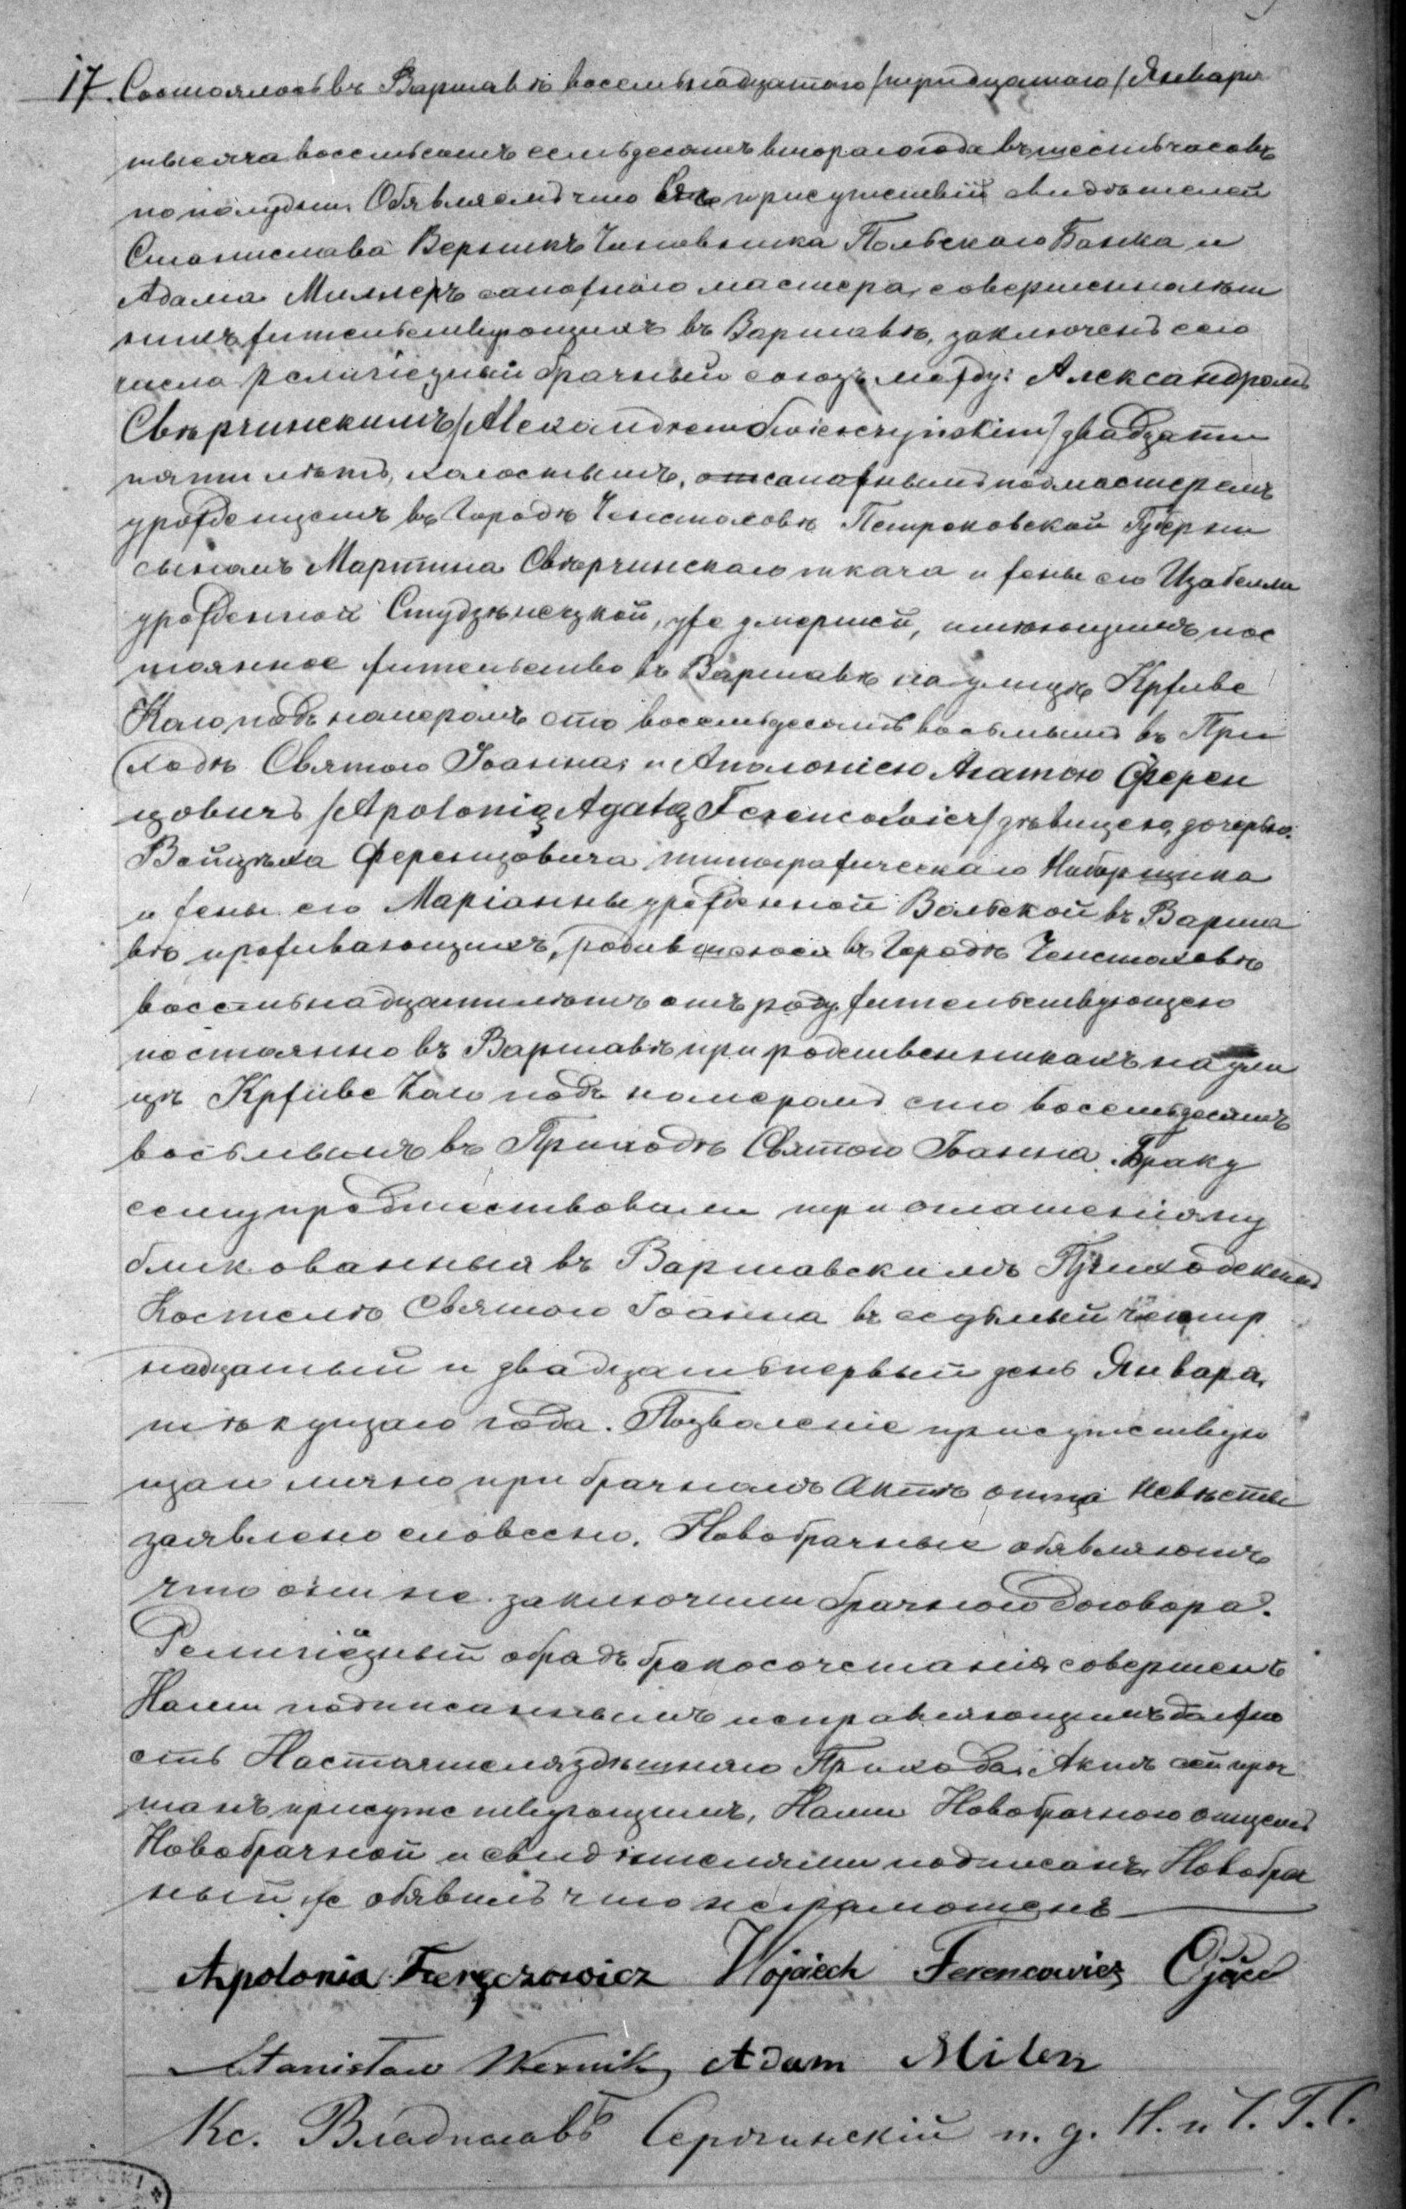 17. Состоялось въ Варшавѣ восемьнадцатаго /тридцатаго/ Января
тысяча восемьсотъ семьдесятъ втораго года въ шесть часовъ
по полудни. Обявляемъ что въ присутствіи свидѣтелей
Станислава Верникъ Чиновника Польскаго Банка и
Адама Миллеръ сапожнаго мастера, совершеннолѣт
нихъ жительствующихъ въ Варшавѣ, заключенъ сего
числа религіозный брачный союзъ между: Александромъ
Свѣрчинскимъ /Alexandrem Świerczyńskim/ двадцати
пяти лѣтъ, холостымъ, сапожнымъ подмастеремъ
урожденцемъ въ Городѣ Ченстоховѣ Петроковской Губерни
сыномъ Мартина Свѣрчинскаго ткача и жены его Изабеллы
урожденной Студзѣнецкой, уже умершей, имѣющимъ пос
тоянное жительство въ Варшавѣ на улицѣ Крживе
Коло подъ номеромъ сто восемьдесятъ восьмымъ въ При
ходѣ Святого Іоанна; и Аполоніею Агатою Ферен
цовичъ /Apolonią Agatą Ferencowicz/ дѣвицею, дочерью
Войцѣха Ференцовича типографическаго Наборщика
и жены его Маріанны урожденной Вольской въ Варша
вѣ проживающихъ, родившеюся въ Городѣ Ченстоховѣ
восемьнадцати лѣтъ отъ роду, жительствующею
постоянно въ Варшавѣ при родственникахъ на ули
цѣ Крживе Коло подъ номеромъ сто восемьдесятъ
восьмымъ въ Приходѣ Святого Іоанна. Браку
сему предшествовали три оглашенія пу
бликованныя въ Варшавскимъ Приходскимъ
Костелѣ Святого Іоанна въ седьмый четыр
надцатый и двадцать первый день Января
тѣкущаго года. Позволеніе присутствую
щаго лично при брачномъ Актѣ отца невѣсты
заявлено словесно. Новобрачные обявляютъ
что они не заключили брачного договора.
Религіозный обрадъ бракосочетанія совершенъ
Нами подписаннымъ исправляющимъ должно
сть Настоятеля здѣшняго Прихода. Актъ сей проч
танъ присутствующимъ, Нами Новобрачною отцемъ
Новобрачной и свидѣтелями подписанъ, Новобрач
ный же обявилъ что неграмотенъ
Apolonia Feręczowicz Wojciech Ferencowicz Ojciec
Stanisław Wernik, Adam Miler
Кс. Владиславъ Серочинскій и. д. Н. и Ч. Г. С.